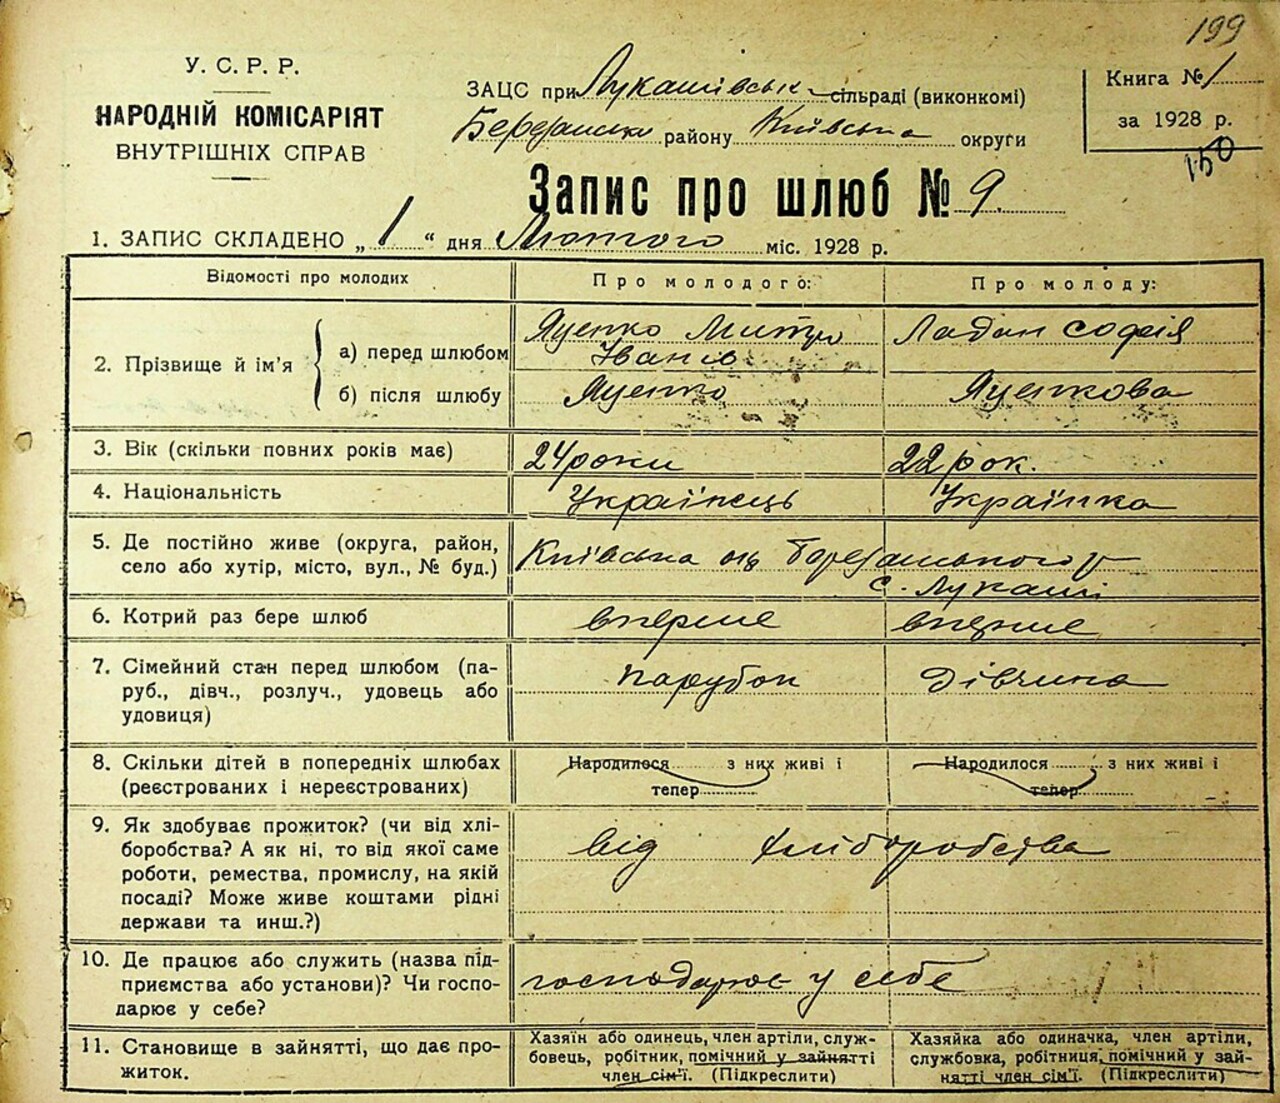 199
У. С. Р. Р.
НАРОДНІЙ КОМІСАРІЯТ
ВНУТРІШНІХ СПРАВ
ЗАЦС при Лукашівськ сільраді (виконкомі)
району Київська округи
Книга № 1
за 1928 р.
150
Запис про шлюб № 9.
1. ЗАПИС СКЛАДЕНО „ 1 “ дня Лютого міс. 1928 р.
Відомості про молодих
Про молодого:
Про молоду:
2. Прізвище й ім'я
а) перед шлюбом
Яценко Митро
Іванів
Ладан Софія
б) після шлюбу
Яценко
Яценкова
3. Вік (скільки повних років має)
24 роки
22 рок.
4. Національність
Українець
Українка
5. Де постійно живе (округа, район,
село або хутір, місто, вул., № буд.)
Київська
с. Лукаші
6. Котрий раз бере шлюб
вперше
вперше
7. Сімейний стан перед шлюбом (па-
руб., дівч., розлуч., удовець або
удовиця)
парубок
дівчина
8. Скільки дітей в попередніх шлюбах
(реєстрованих і нереєстрованих)
Народилося з них живі і
тепер
Народилося з них живі і
тепер
9. Як здобуває прожиток? (чи від хлі-
боробства? А як ні, то від якої саме
роботи, ремества, промислу, на якій
посаді? Може живе коштами рідні
держави та инш.?)
від хліборобства
10. Де працює або служить (назва під-
приємства або установи)? Чи госпо-
дарює у себе?
господарює у себе
11. Становище в зайнятті, що дає про-
житок.
Хазяїн або одинець, член артіли, служ-
бовець, робітник, помічний у зайнятті
член сім'ї. (Підкреслити)
Хазяйка або одиначка, член артіли,
службовка, робітниця, помічний у зай-
нятті член сім'ї. (Підкреслити)